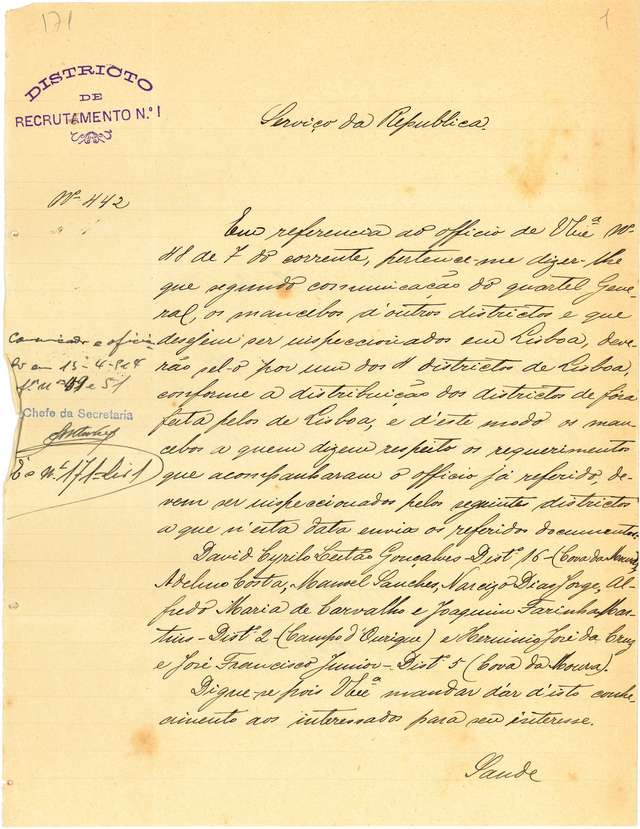 171
1
DISTRICTO
DE
RECRUTAMENTO N.º 1
Serviço da Republica.
Nº 442
Em referencia ao officio de V.Exª Nº
48 de 7 do corrente, pertence-me dizer-lhe
que segundo communicação do quartel Gene-
ral, os mancebos d'outros districtos e que
desejem ser inspeccionados em Lisboa, deve-
rão sel-o por um dos 4 districtos de Lisboa,
conforme a distribuição dos districtos de fóra
feita pelos de Lisboa, e d'este modo os man-
cebos a quem dizem respeito os requerimentos
que acompanharam o officio já referido, de-
vem ser inspeccionados pelos seguintes districtos
a que n'esta data envia os referidos documentos:
David Cyrilo Leitão Gonçalves - Distº 16 - (Cova da Moura)
Adelino Costa, Manoel Sanches, Narcizo Dias Jorge, Al-
fredo Maria de Carvalho e Joaquim Farinha Mar-
tins - Distº 2 - (Campo d'Ourique) e Herminio José da Cruz
e José Francisco Junior - Distº 5 (Cova da Moura).
Digne-se pois V.Exª mandar dár d'isto conhe-
cimento aos interessados para seu interesse.
Saude
em 13-4-
e 51
Chefe da Secretaria
Nº 171